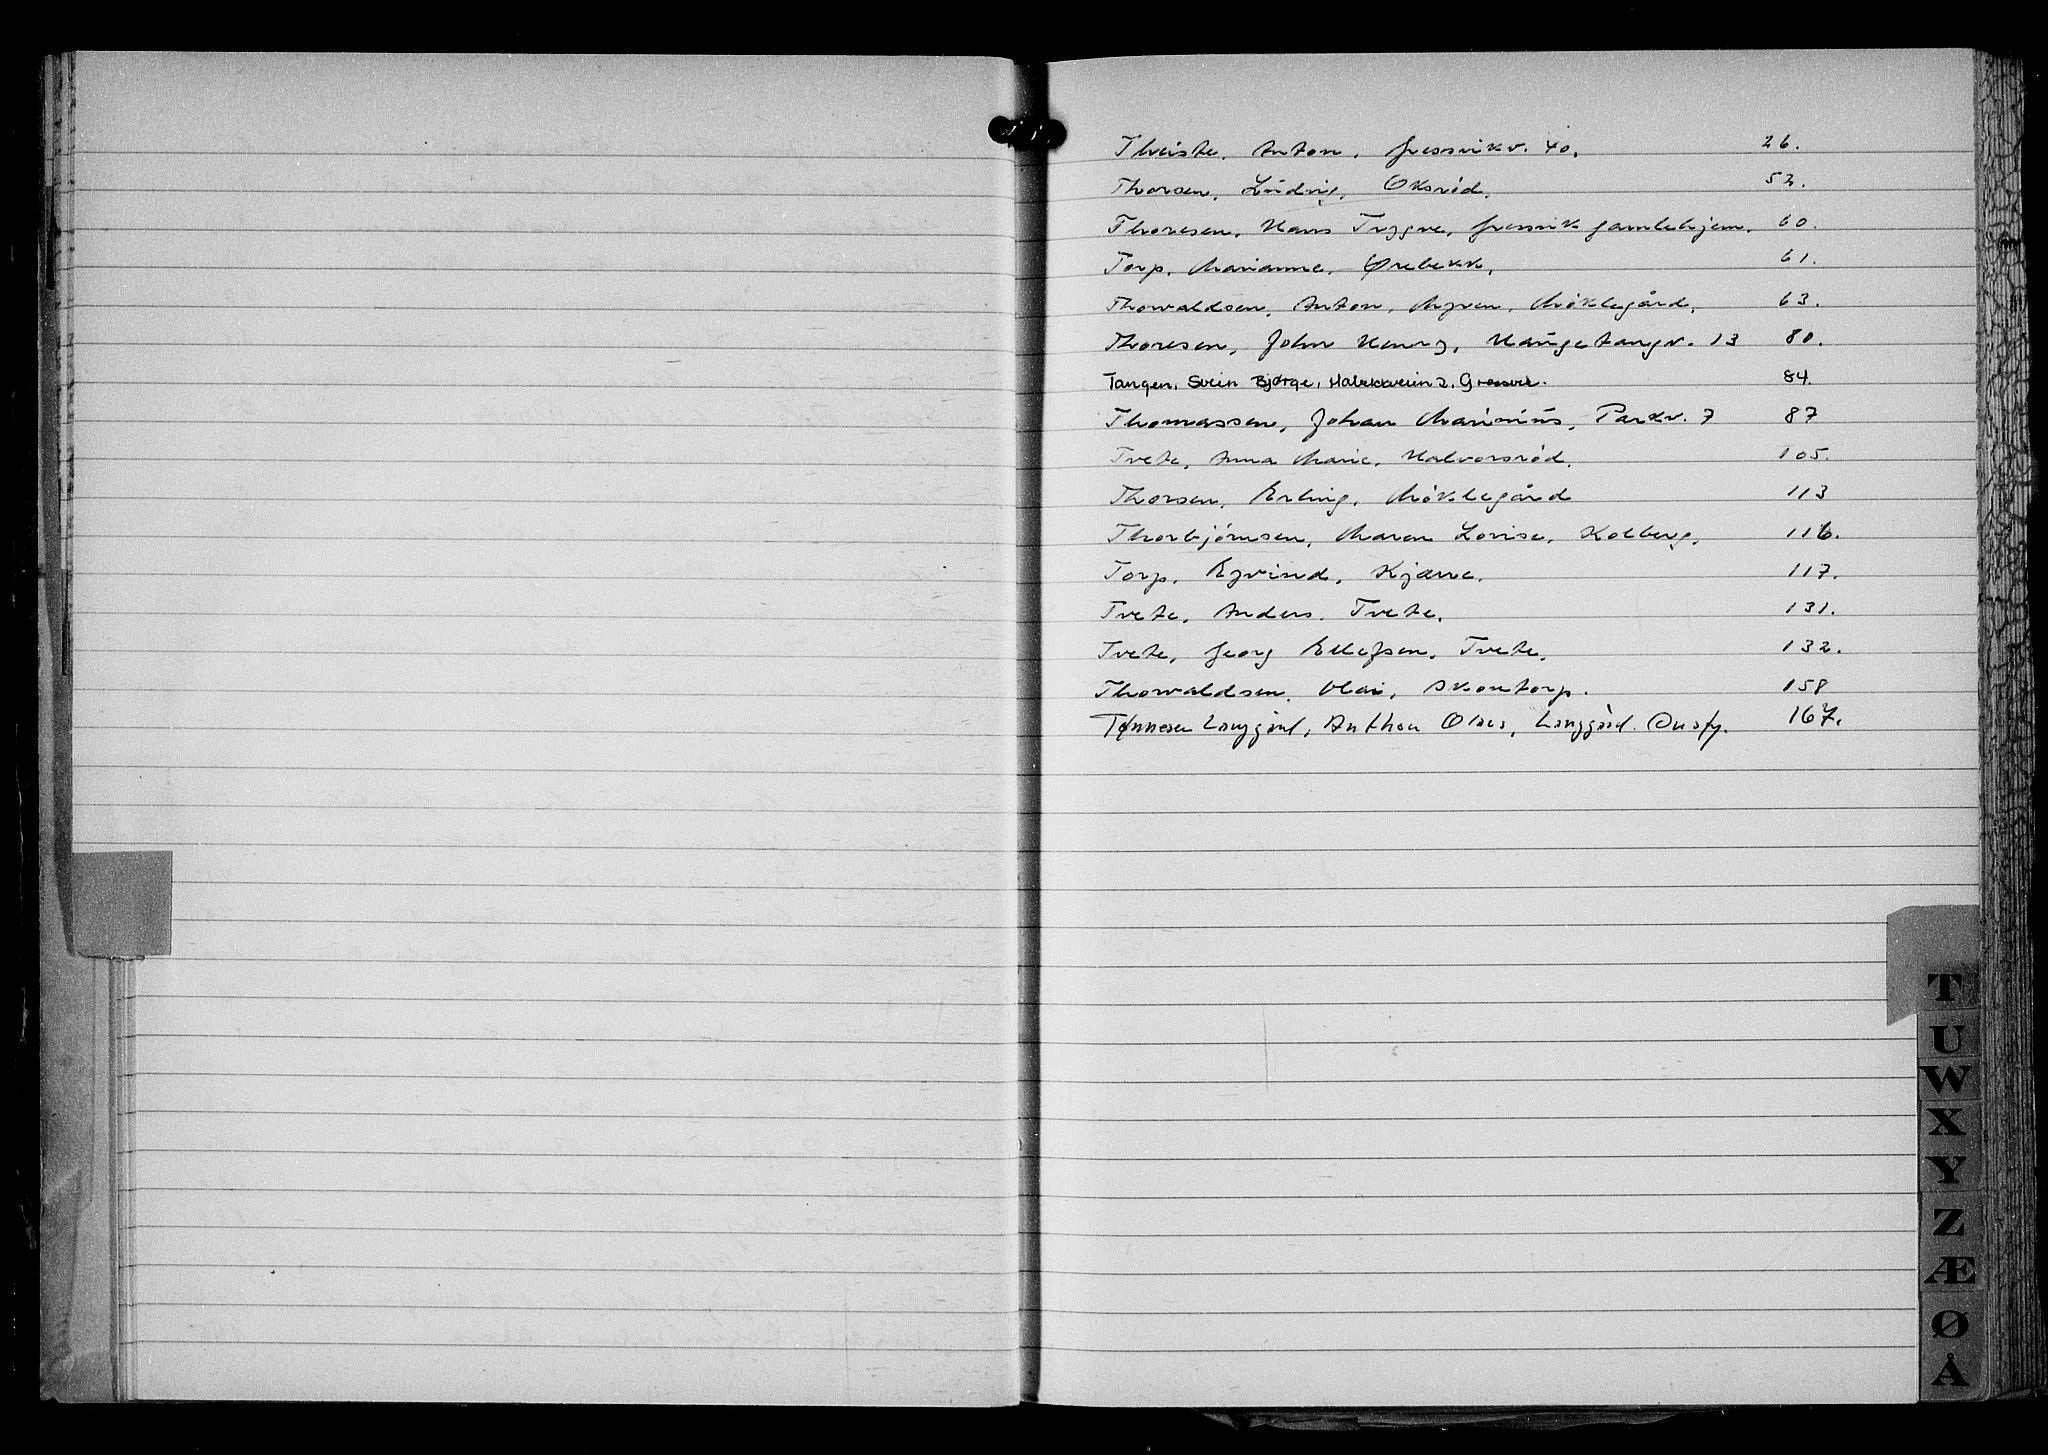 Theiste, Anton, Gressvikv. 40. 26.
Thorsen, Ludvig, Oksrød. 52.
Thoresen, Hans Trygve, Gressvik gamlehjem. 60.
Torp, Marianne, Ørebekk. 61.
Thorvaldsen, Anton, Myren, Møklegård. 63.
Thoresen, John Henry, Haugetangv. 13 80.
Tangen, Svein Bjørge, Gressvik. 84.
Thomassen, Johan Marinius, Parkv. 7 87
Tvete, Anna Marie, Halvorsrød. 105.
Thorsen, Erling, Møklegård 113
Thorbjørnsen, Maren Lovise, Kolberg. 116.
Torp, Eyvind, Kjærre. 117.
Tvete, Anders. Tvete. 131.
Tvete, Georg Ellefsen. Tvete. 132.
Thorvaldsen, Olai, Skontorp. 158
Tønnesen Langgård, Anthon Olaus, Langgård. Onsøy. 167.
T
U
W
X
Y
Z
Æ
Ø
Å